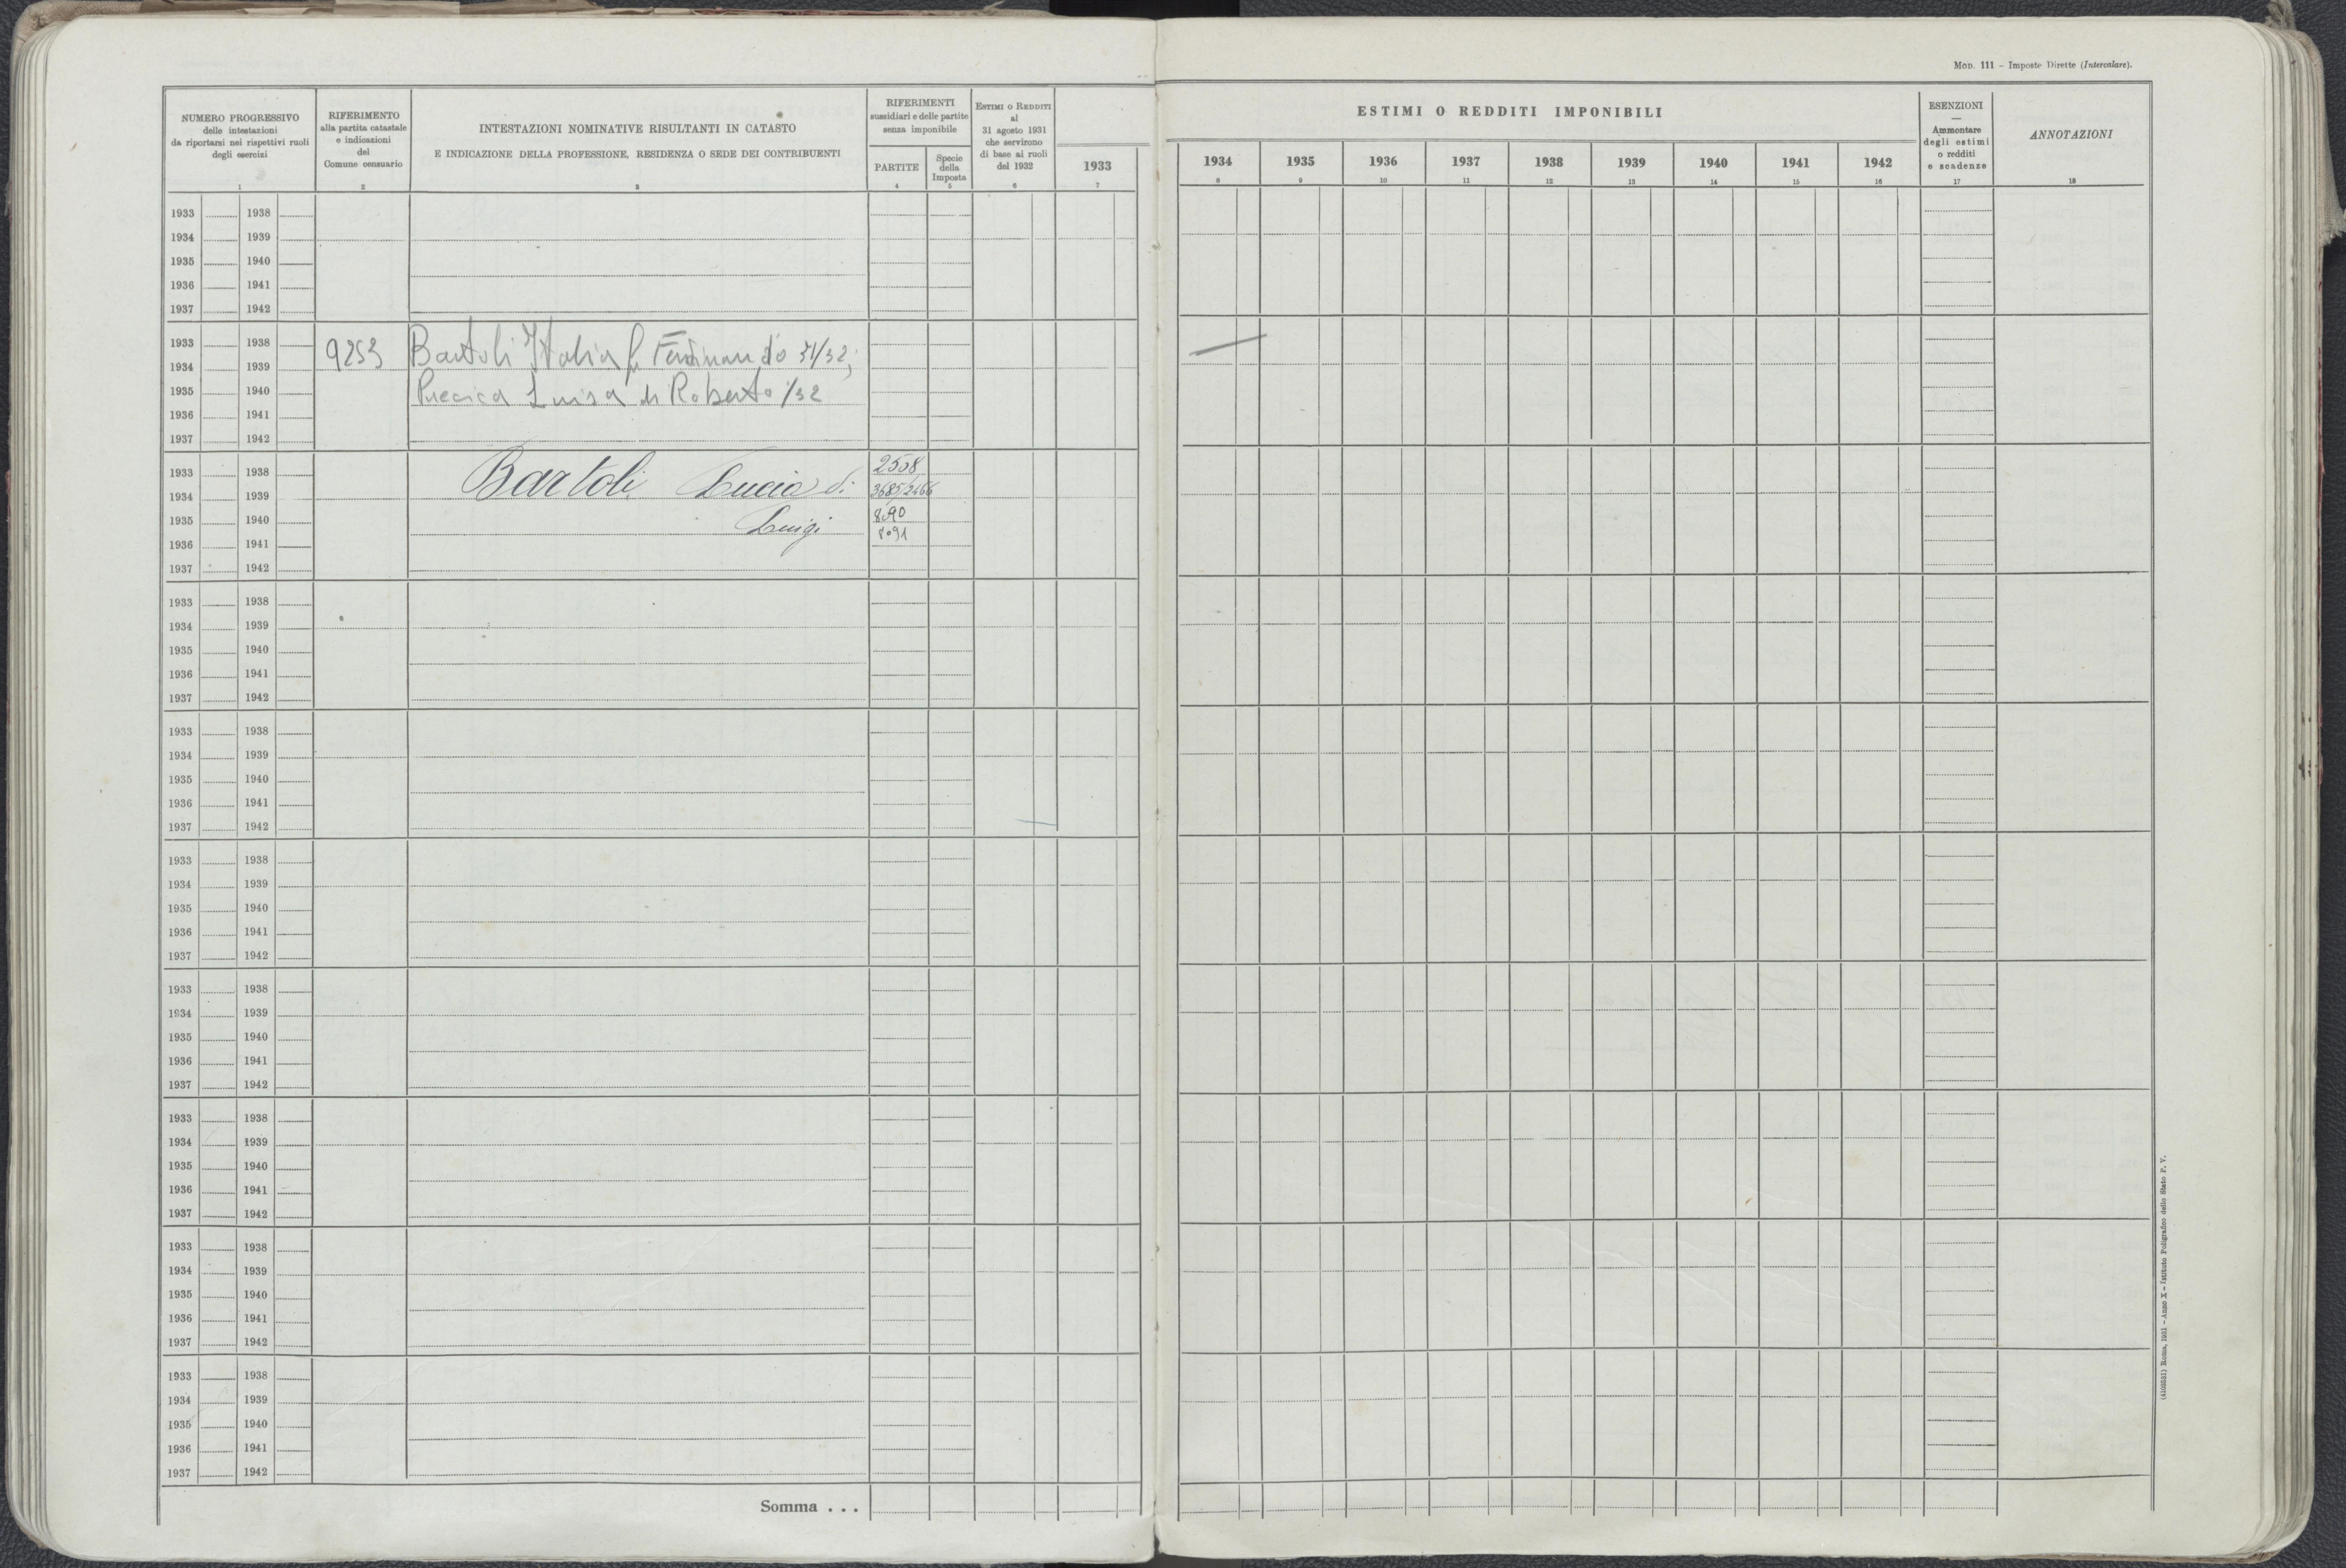 Mod. 111 – Imposte Dirette (Intercalare).
NUMERO PROGRESSIVO
delle intestazioni
da riportarsi nei rispettivi ruoli
degli esercizi
1
RIFERIMENTO
alla partita catastale
e indicazioni
del
Comune censuario
2
INTESTAZIONI NOMINATIVE RISULTANTI IN CATASTO
E INDICAZIONE DELLA PROFESSIONE, RESIDENZA O SEDE DEI CONTRIBUENTI
3
RIFERIMENTI
sussidiari e delle partite
senza imponibile
PARTITE
4
Specie
della
Imposta
5
Estimi o Redditi
al
31 agosto 1931
che servirono
di base ai ruoli
del 1932
6
1933
7
ESTIMI O REDDITI IMPONIBILI
1934 1935 1936 1937 1938 1939 1940 1941 1942
8 9 10 11 12 13 14 15 16
ESENZIONI
—
Ammontare
degli estimi
o redditi
e scadenze
17
ANNOTAZIONI
18
1933 1938
1934 1939
1935 1940
1936 1941
1937 1942
1933 1938
9253 Bartoli Italia fu Ferdinando 31/32;
1934 1939
1935 1940
Luisa di Roberto 1/32
1936 1941
1937 1942
1933 1938
2508
Bartoli Lucia di
1934 1939
3685/2466
1935 1940
8090
Luigi
1936 1941
8091
1937 1942
1933 1938
1934 1939
1935 1940
1936 1941
1937 1942
1933 1938
1934 1939
1935 1940
1936 1941
1937 1942
1933 1938
1934 1939
1935 1940
1936 1941
1937 1942
1933 1938
1934 1939
1935 1940
1936 1941
1937 1942
1933 1938
1934 1939
1935 1940
1936 1941
1937 1942
1933 1938
1934 1939
1935 1940
1936 1941
1937 1942
1933 1938
1934 1939
1935 1940
1936 1941
1937 1942
Somma . . .
(4103531) Roma, 1931 – Anno X – Istituto Poligrafico dello Stato P. V.